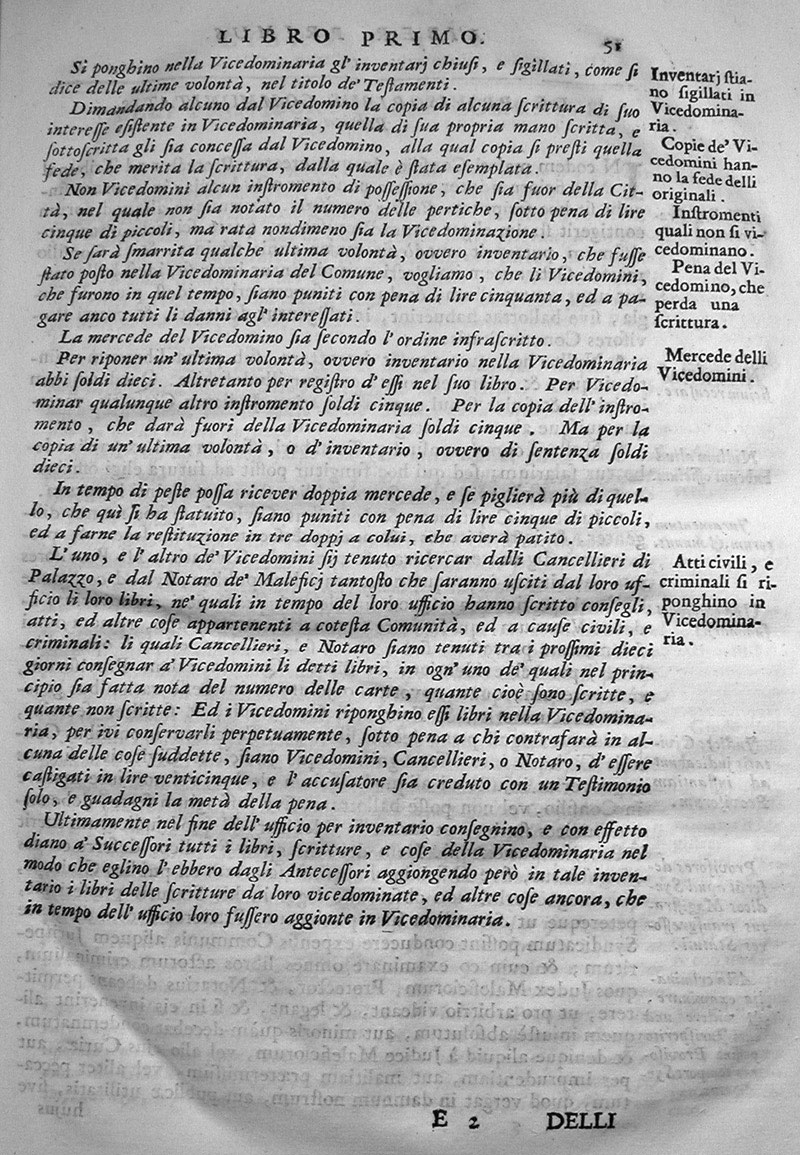 LIBRO PRIMO.
51
Si ponghino nella Vicedominaria gl' inventarj chiuſi, e ſigillati, come ſi
dice delle ultime volontà, nel titolo de' Teſtamenti.
Dimandando alcuno dal Vicedomino la copia di alcuna ſcrittura di ſuo
intereſſe eſiſtente in Vicedominaria, quella di ſua propria mano ſcritta, e
ſottoſcritta gli ſia conceſſa dal Vicedomino, alla qual copia ſi preſti quella
fede, che merita la ſcrittura, dalla quale è ſtata eſemplata.
Non Vicedomini alcun inſtromento di poſſeſſione, che ſia fuor della Cit-
tà, nel quale non ſia notato il numero delle pertiche, ſotto pena di lire
cinque di piccoli, ma rata nondimeno ſia la Vicedominazione.
Se ſarà ſmarrita qualche ultima volontà, ovvero inventario, che fuſſe
ſtato poſto nella Vicedominaria del Comune, vogliamo, che li Vicedomini,
che furono in quel tempo, ſiano puniti con pena di lire cinquanta, ed a pa-
gare anco tutti li danni agl' intereſſati.
La mercede del Vicedomino ſia ſecondo l' ordine infraſcritto.
Per riponer un' ultima volontà, ovvero inventario nella Vicedominaria
abbi ſoldi dieci. Altretanto per regiſtro d' eſſi nel ſuo libro. Per Vicedo-
minar qualunque altro inſtromento ſoldi cinque. Per la copia dell' inſtro-
mento, che darà fuori della Vicedominaria ſoldi cinque. Ma per la
copia di un' ultima volontà, o d' inventario, ovvero di ſentenza ſoldi
dieci.
In tempo di peſte poſſa ricever doppia mercede, e ſe piglierà più di quel-
lo, che quì ſi ha ſtatuito, ſiano puniti con pena di lire cinque di piccoli,
ed a farne la reſtituzione in tre doppj a colui, che averà patito.
L' uno, e l' altro de' Vicedomini ſij tenuto ricercar dalli Cancellieri di
Palazzo, e dal Notaro de' Maleficj tantoſto che ſaranno uſciti dal loro uf-
ficio li loro libri, ne' quali in tempo del loro ufficio hanno ſcritto conſegli,
atti, ed altre coſe appartenenti a coteſta Comunità, ed a cauſe civili, e
criminali: li quali Cancellieri, e Notaro ſiano tenuti tra i proſſimi dieci
giorni conſegnar a' Vicedomini li detti libri, in ogn' uno de' quali nel prin-
cipio ſia fatta nota del numero delle carte, quante cioè ſono ſcritte, e
quante non ſcritte: Ed i Vicedomini riponghino eſſi libri nella Vicedomina-
ria, per ivi conſervarli perpetuamente, ſotto pena a chi contrafarà in al-
cuna delle coſe ſuddette, ſiano Vicedomini, Cancellieri, o Notaro, d' eſſere
caſtigati in lire venticinque, e l' accuſatore ſia creduto con un Teſtimonio
ſolo, e guadagni la metà della pena.
Ultimamente nel fine dell' ufficio per inventario conſegnino, e con effetto
diano a' Succeſſori tutti i libri, ſcritture, e coſe della Vicedominaria nel
modo che eglino l' ebbero dagli Anteceſſori aggiongendo però in tale inven-
tario i libri delle ſcritture da loro vicedominate, ed altre coſe ancora, che
in tempo dell' ufficio loro fuſſero aggionte in Vicedominaria.
Inventarj ſtia-
no ſigillati in
Vicedomina-
ria.
Copie de' Vi-
cedomini han-
no la fede delli
originali.
Inſtromenti
quali non ſi vi-
cedominano.
Pena del Vi-
cedomino, che
perda una
ſcrittura.
Mercede delli
Vicedomini.
Atti civili, e
criminali ſi ri-
ponghino in
Vicedomina-
ria.
E 2
DELLI